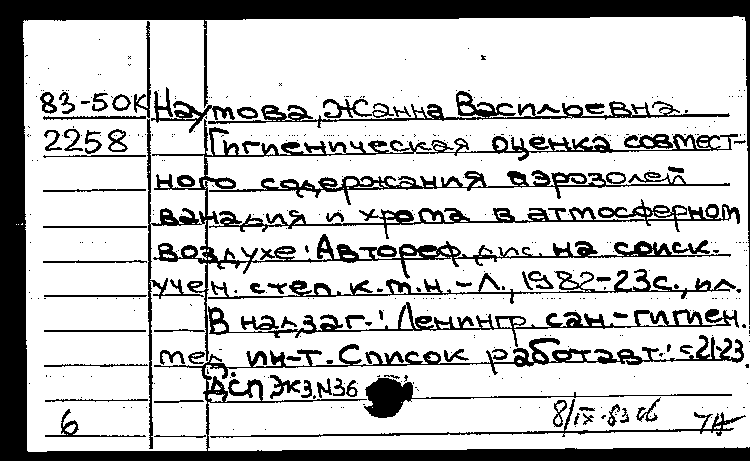 83-50К Наумова, Жанна Васильевна.
2258 Гигиеническая оценка совмест-
ного содержания аэрозолей
ванадия и хрома в атмосферном
воздухе: Автореф. дис. на соиск.
учен. степ. к.м.н. - Л., 1982 - 23с., ил.
В надзаг.: Ленингр. сан.-гигиен.
мед. ин-т. Список работ авт.: с.21-23.
ДСП Экз.N36
6 8/IX-83